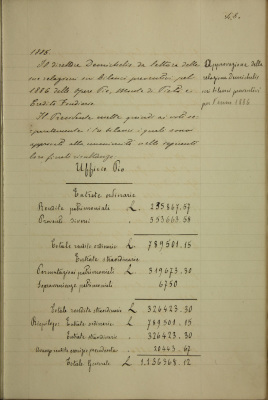 1885.
Il direttore Demichelis dà lettura delle
sue relazioni sui bilanci preventivi pel
1886 delle Opere Pie, Monte di Pietà e
Credito Fondiario.
Approvazione della
relazione Demichelis
sui bilanci preventivi
per l'anno 1886
Il Presidente mette quindi ai voti
i bilanci i quali sono
approvati all'unanimità nelle seguenti
loro finali risultanze.
Ufficio Pio
Entrate ordinarie
Rendite patrimoniali L. 235867.57
Proventi diversi 553633.58
Totale entrate ordinarie L. 789501.15
Entrate straordinarie
Permutazioni patrimoniali L. 319673.30
Sopravvenienze patrimoniali 6750
Totale entrate straordinarie L. 326423.30
Riepilogo: Entrate ordinarie L. 789501.15
Entrate straordinarie 326423.30
Avanzo esercizio precedente 20443.67
Totale Generale L. 1.136368.12